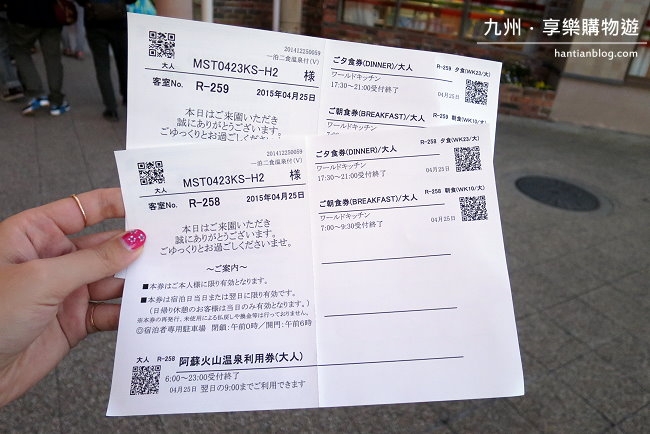 九州．享樂購物遊
hantianblog.com
201412250059
大人 一泊二食温泉付(V)
MST0423KS-H2 様
客室No. R-259 2015年04月25日
本日はご来園いただき
誠にありがとうございます。
ごゆっくりとお過ごしくださいませ。
ご夕食券(DINNER)/大人 R-259 夕食(WK23/大)
ワールドキッチン
17:30～21:00受付終了 04月25日
ご朝食券(BREAKFAST)/大人 R-259 朝食(WK10/大)
ワールドキッチン
201412250059
大人 一泊二食温泉付(V)
MST0423KS-H2 様
客室No. R-258 2015年04月25日
本日はご来園いただき
誠にありがとうございます。
ごゆっくりとお過ごしくださいませ。
～ご案内～
■本券はご本人様に限り有効となります。
■本券は宿泊日当日または翌日に限り有効です。
(日帰り休憩のお客様は当日のみ有効となります。)
※本券の再発行、未使用による払戻しや換金等は行っておりません。
◎宿泊者専用駐車場 閉鎖:午前0時／開門:午前6時
大人 R-258 阿蘇火山温泉利用券(大人)
6:00～23:00受付終了
04月25日 翌日の9:00までご利用できます
ご夕食券(DINNER)/大人 R-258 夕食(WK23/大)
ワールドキッチン
17:30～21:00受付終了 04月25日
ご朝食券(BREAKFAST)/大人 R-258 朝食(WK10/大)
ワールドキッチン
7:00～9:30受付終了 04月25日